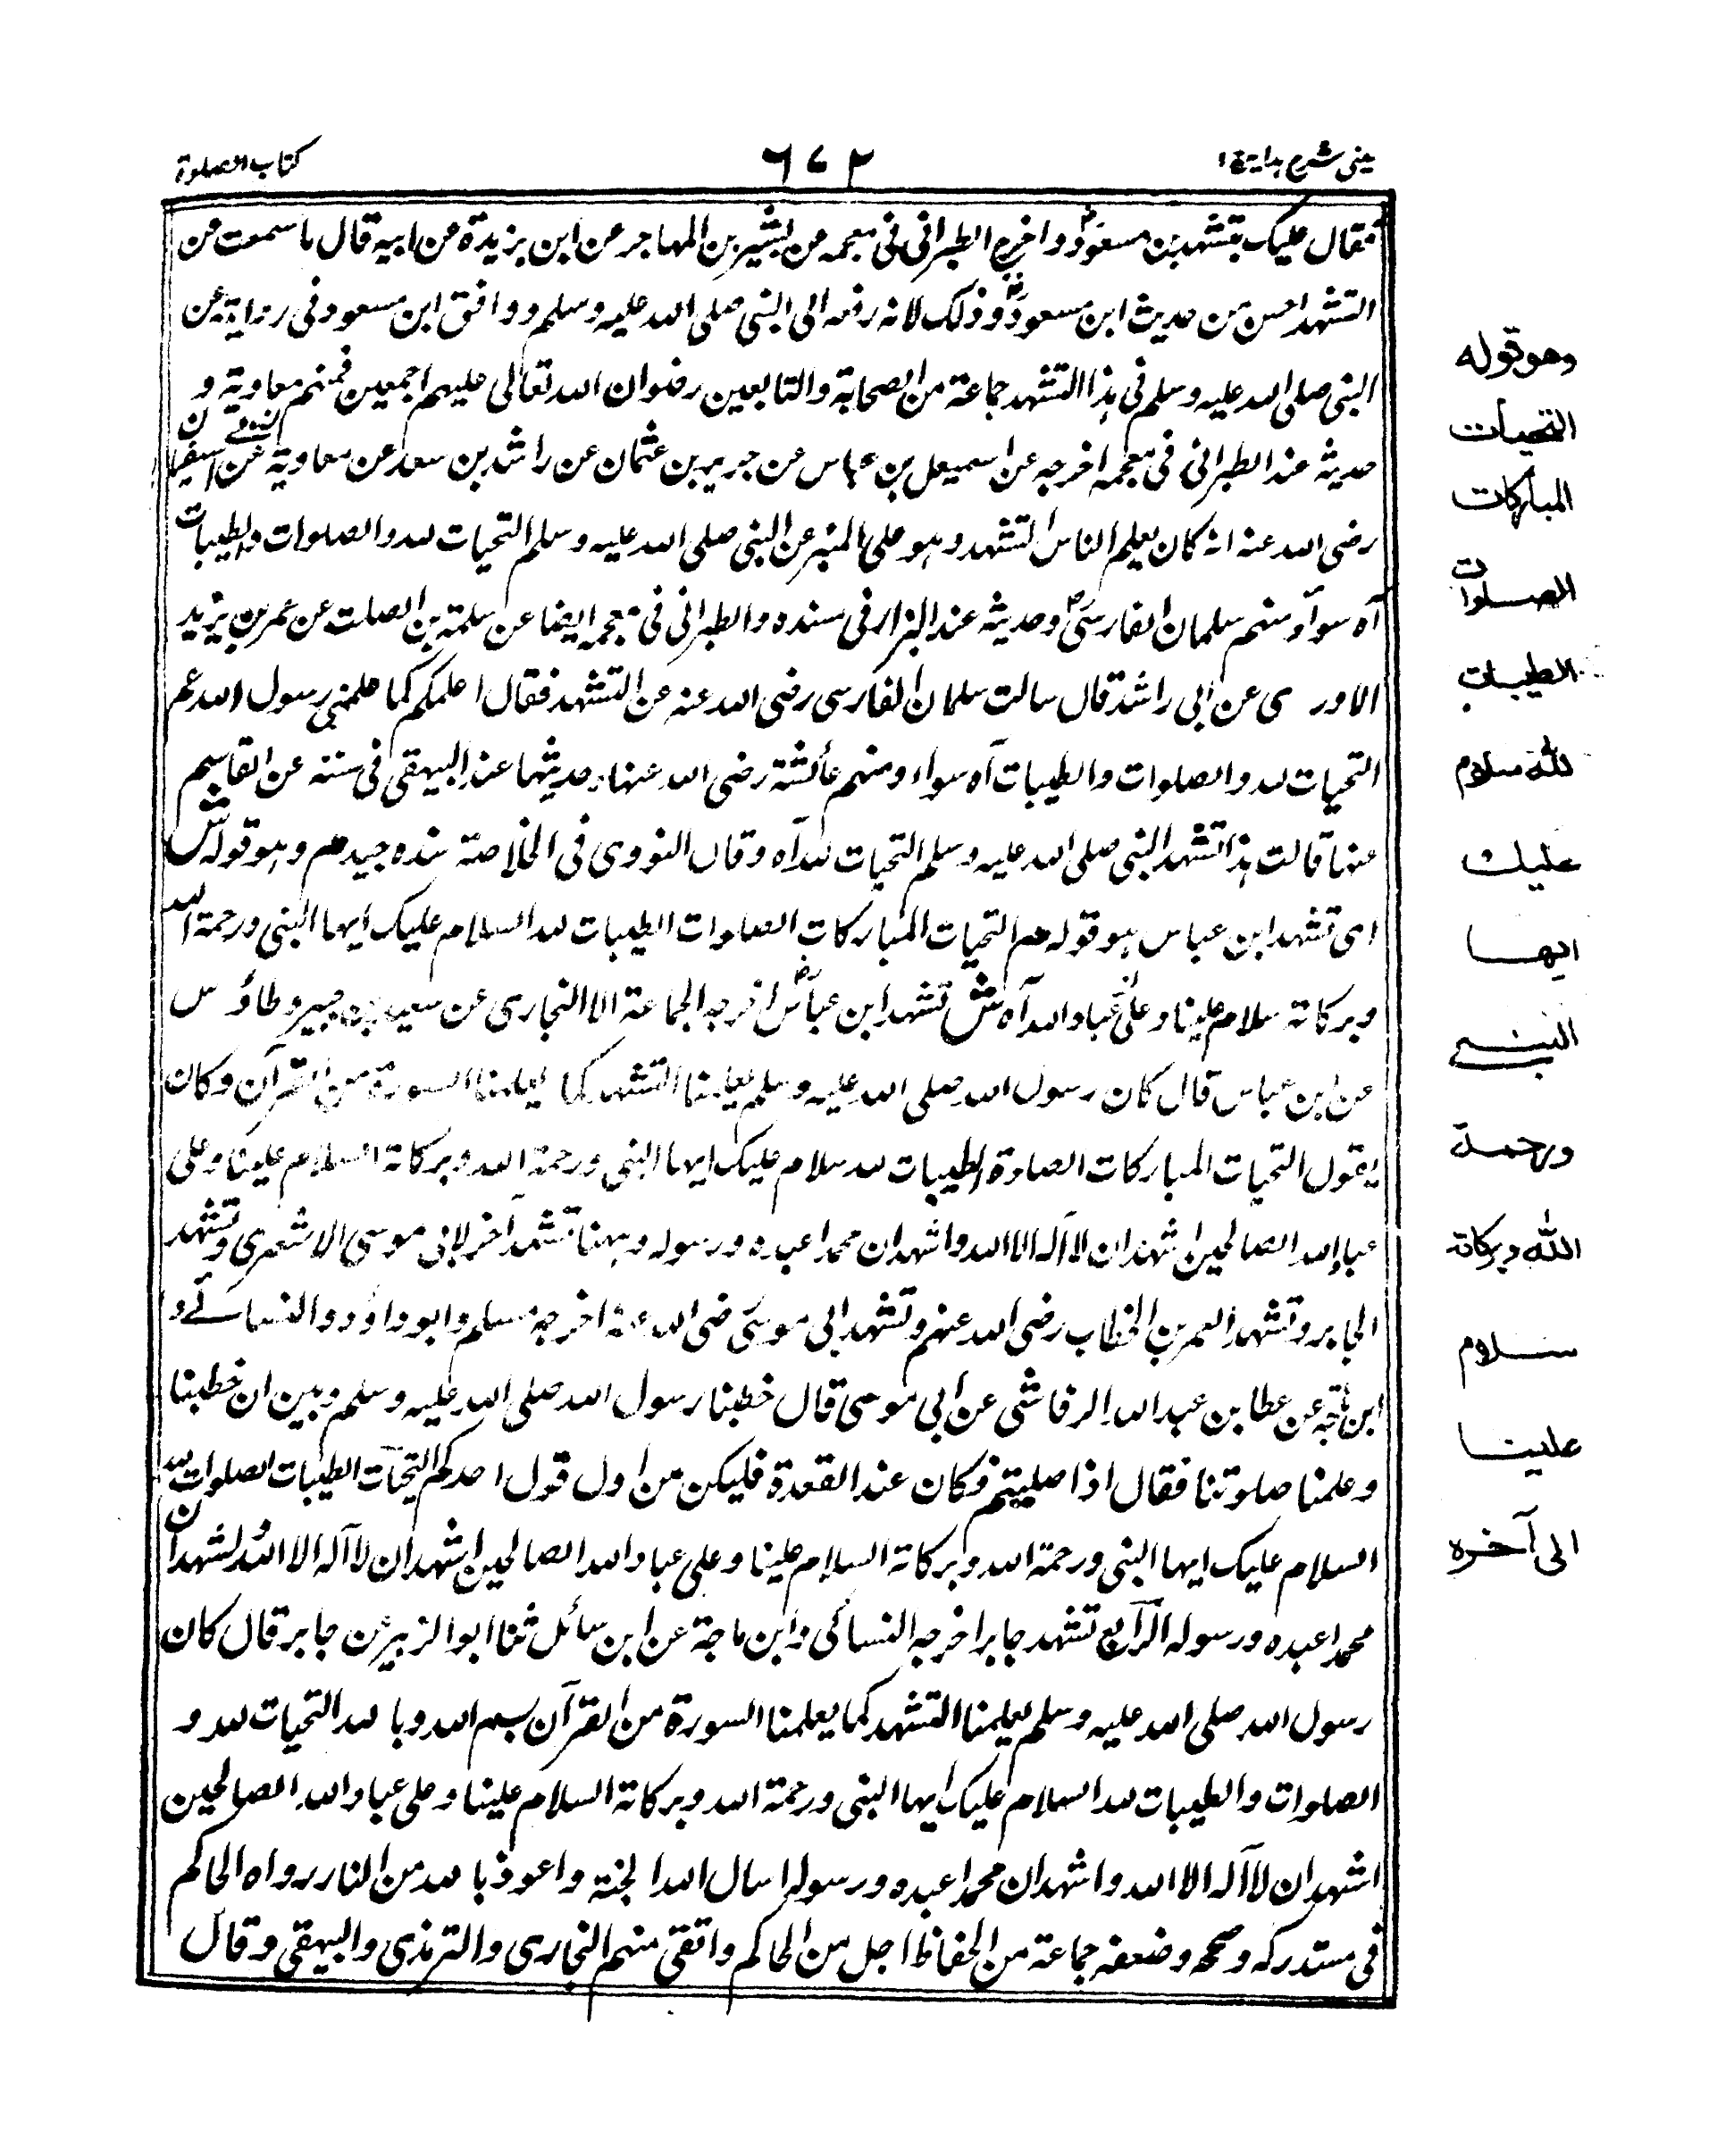 عینی شرح ہدایۃ ج ۱
٦٧٢
کتاب الصلوۃ
فقال علیک بتشہد بن مسعود واخرج الطبرانی فی معجمہ من بشیر بن المہاجر عن ابن بریدۃ عن ابیہ قال ما سمعت من
التشہد احسن من حدیث ابن مسعود وذلک لانہ رفعہ الی النبی صلی اللہ علیہ وسلم ووافق ابن مسعود فی روایۃ عن
النبی صلی اللہ علیہ وسلم فی ہذا التشہد جماعۃ من الصحابۃ والتابعین رضوان اللہ تعالی علیہم اجمعین فمنہم معاویۃ و
حدیثہ عند الطبرانی فی معجمہ اخرجہ عن اسمیعل بن عیاس عن جریر بن عثمان عن راشد بن سعد عن معاویۃ
رضی اللہ عنہ انہ کان یعلم الناس التشہد وہو علی المنبر عن النبی صلی اللہ علیہ وسلم التحیات للہ والصلوات والطیبات
آہ سوآء ومنہم سلمان الفارسی وحدیثہ عند البزار فی مسندہ والطبرانی فی معجمہ ایضا عن سلمۃ بن الصلت عن عمر بن یزید
الاور ی عن ابی راشد قال سالت سلمان الفارسی رضی اللہ عنہ عن التشہد فقال اعلمکم کما علمنی رسول اللہ عم
التحیات للہ والصلوات والطیبات آہ سواء ومنہم عائشۃ رضی اللہ عنہا وحدیثہا عند البیہقی فی سننہ عن القاسم
عنہا قالت ہذا تشہد النبی صلی اللہ علیہ وسلم التحیات للہ آہ وقال النووی فی الخلاصۃ سندہ جید م وہو قولہ ش
ای تشہد ابن عباس ہو قولہ م التحیات المبارکات الصلوات الطیبات للہ السلام علیک ایہا النبی ورحمۃ اللہ
وبرکاتہ سلام علینا وعلی عباد اللہ آہ ش تشہد ابن عباس اخرجہ الجماعۃ الا البخاری عن سعید بن جبیر وطاؤس
عن ابن عباس قال کان رسول اللہ صلی اللہ علیہ وسلم یعلمنا التشہد کما یعلمنا السورۃ من القرآن وکان
یقول التحیات المبارکات الصلوۃ الطیبات للہ سلام علیک ایہا النبی ورحمۃ اللہ وبرکاتہ السلام علینا وعلی
عباد اللہ الصالحین اشہد ان لا آلہ الا اللہ واشہد ان محمدا عبدہ ورسولہ وہہنا تشہد آخر لابی موسی الاشعری وتشہد
الجابر وتشہد العمر بن الخطاب رضی اللہ عنہم وتشہد ابی موسی رضی اللہ عنہ اخرجہ مسلم وابو داؤد والنسائے و
ابن ماجہ عن عطا بن عبد اللہ الرقاشی عن ابی موسی قال خطبنا رسول اللہ صلی اللہ علیہ وسلم وبین ان خطبنا
وعلمنا صلوتنا فقال اذا صلیتم فکان عند القعدۃ فلیکن من اول قول احدکم التحیات الطیبات الصلوات للہ
السلام علیک ایہا النبی ورحمۃ اللہ وبرکاتہ السلام علینا وعلی عباد اللہ الصالحین اشہد ان لا آلہ الا اللہ واشہد ان
محمدا عبدہ ورسولہ الرابع تشہد جابر اخرجہ النسائی وابن ماجۃ عن ابن سائل ثنا ابو الزبیر عن جابر قال کان
رسول اللہ صلی اللہ علیہ وسلم یعلمنا التشہد کما یعلمنا السورۃ من القرآن بسم اللہ وباللہ التحیات للہ و
الصلوات والطیبات للہ السلام علیک ایہا النبی ورحمۃ اللہ وبرکاتہ السلام علینا وعلی عباد اللہ الصالحین
اشہد ان لا آلہ الا اللہ واشہد ان محمدا عبدہ ورسولہ اسال اللہ الجنۃ واعوذ باللہ من النار رواہ الحاکم
فی مستدرکہ وصححہ وضعفہ جماعۃ من الحفاظ اجل من الحاکم واتقی منہم البخاری والترمذی والبیہقی وقال
وھو قولہ
التحیات
المبارکات
الصلوات
الطیبات
للہ سلام
علیک
ایھا
النبی
ورحمۃ
اللہ وبرکاتہ
سلام
علینا
الی آخرہ